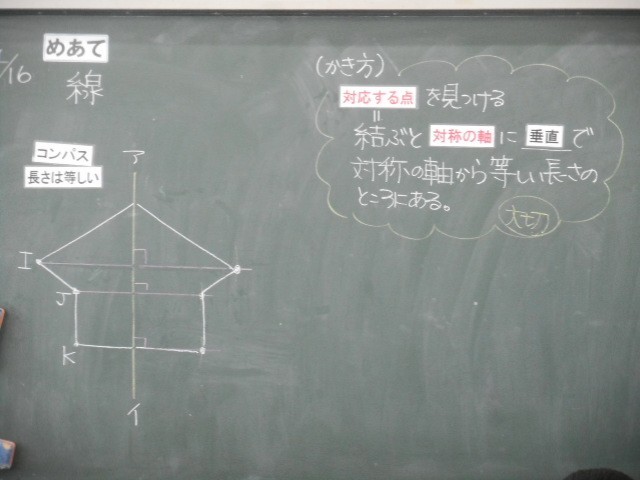 /16
めあて
線
コンパス
長さは等しい
ア
I
J
K
イ
(かき方)
対応する点 を見つける
=
結ぶと 対称の軸 に 垂直 で
対称の軸から等しい長さの
ところにある。
大切